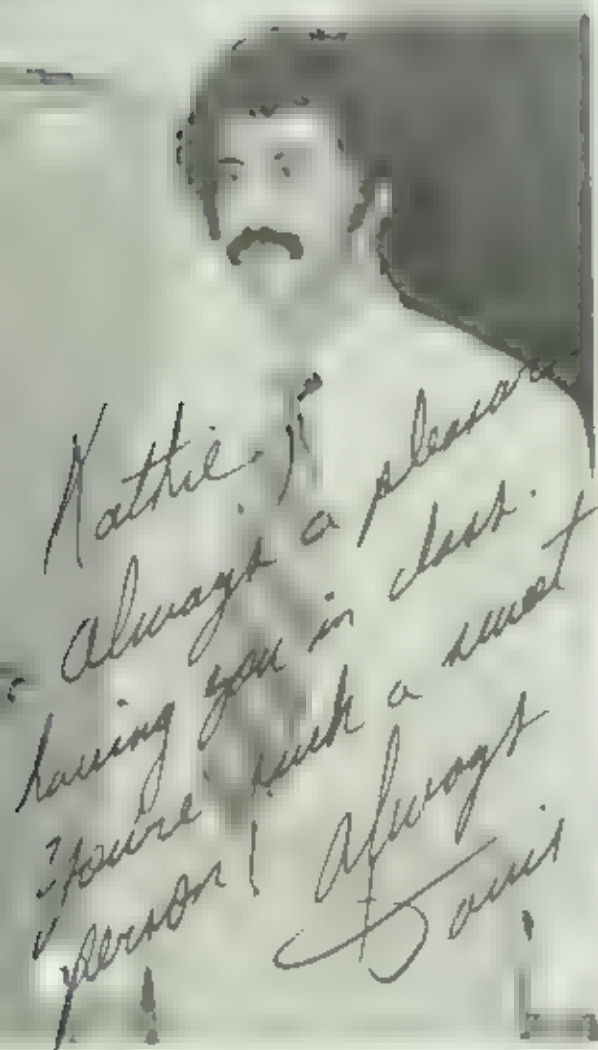 Kathie,
Always a pleasure
having you in class.
You're such a sweet
person! Always